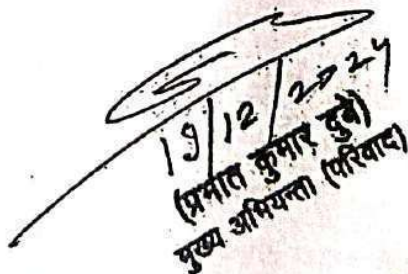 19/12/2024
(प्रभात कुमार दुबे)
मुख्य अभियन्ता (परिवाद)